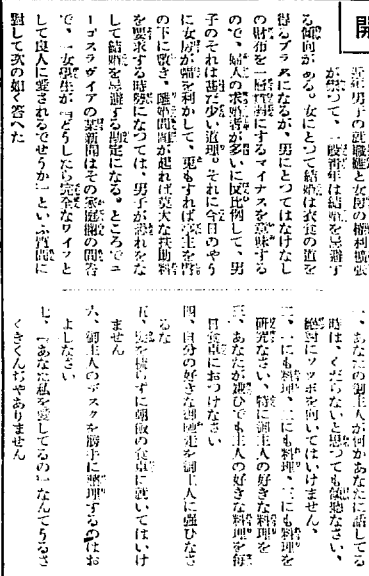 開
近年男子の就職難と女房の權利擴張
が祟つて、一般靑年は結婚を忌避す
る傾向がある。女にとつて結婚は衣食の道を
得るプラスになるが、男にとつてはなけなし
の財布を一層空虛にするマイナスを意味する
ので、婦人の求婚者が多いに反比例して、男
子のそれは甚だ少い道理。それに今日のやう
に女房が幅を利かして、更もすれば亭主を臀
の下に敷き、離婚問題が起れば莫大な扶助料
を要求する時勢になつては、男子が
して結婚を忌避する勘定になる。ところでユ
ーゴスラヴイアの某新聞はその家庭欄の問答
で、一女學生が「どうしたら完全なワイフと
して良人に愛されるでせうか」といふ質問に
對して次の如く答へた
一、あなたの御主人が何かあなたに話してる
時は、くだらないと思つても傾聽なさい、
絕對にソツポを向いてはいけません、
二、一にも料理、二にも料理、三にも料理を
硏究なさい、特に御主人の好きな料理を
三、あなたが嫌ひでも主人の好きな料理を每
日食卓におつけなさい
四、自分の好きな御馳走を御主人に强ひなさ
るな
五、髮を結らずに朝飯の食卓に就いてはいけ
ません
六、御主人のデスクを勝手に整理するのはお
よしなさい
七、「あなた私を愛してるの」なんてうるさ
くきくんぢやありません